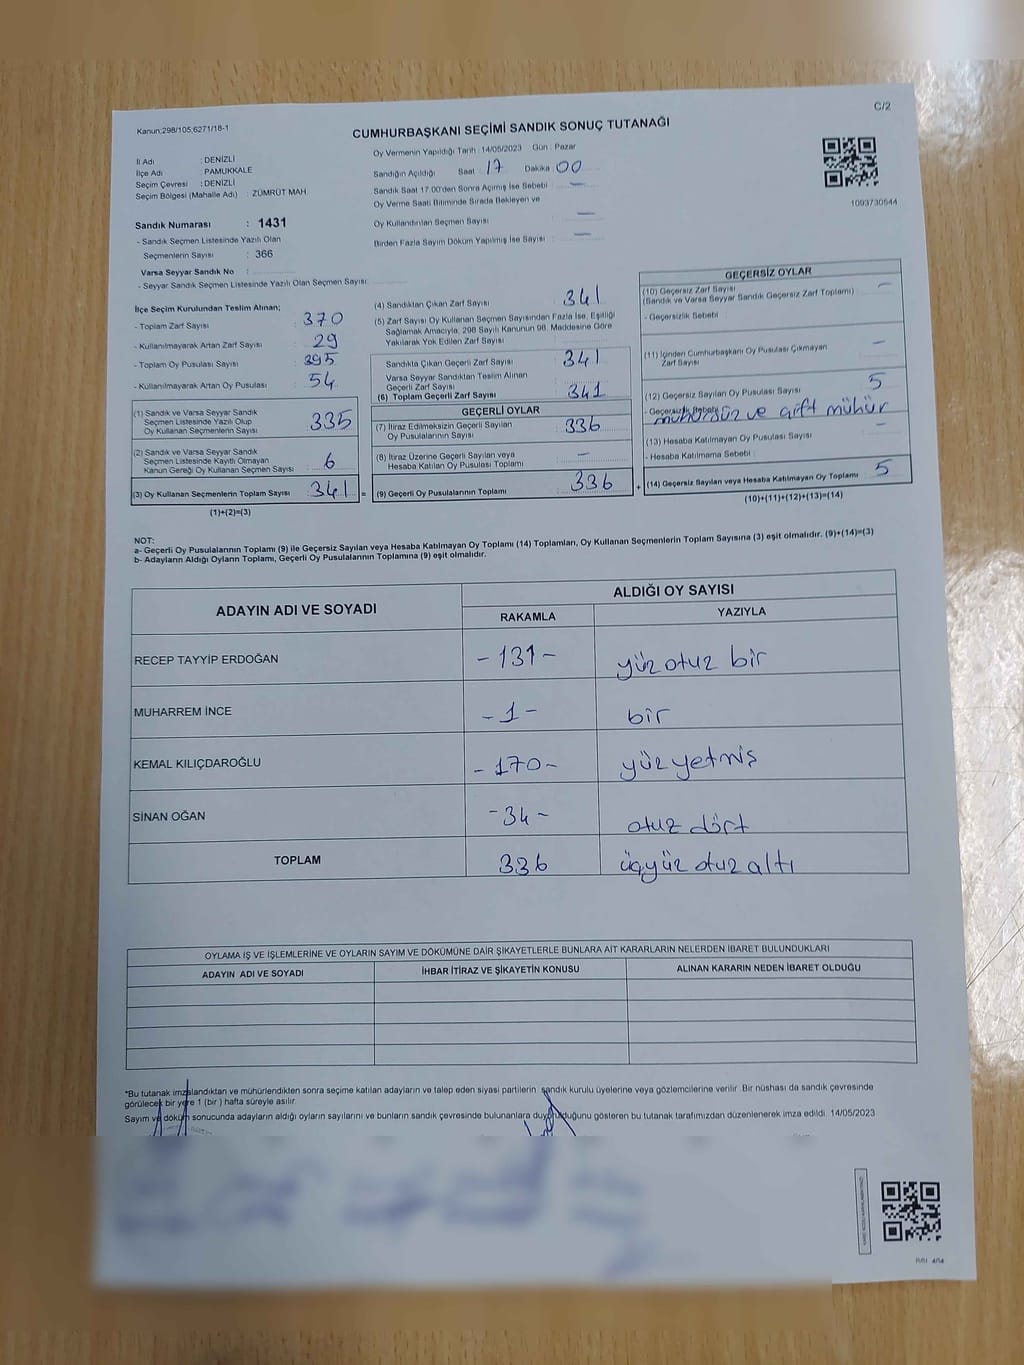 C/2
Kanun:298/105;6271/18-1
CUMHURBAŞKANI SEÇİMİ SANDIK SONUÇ TUTANAĞI
İl Adı : DENİZLİ
İlçe Adı : PAMUKKALE
Seçim Çevresi : DENİZLİ
Seçim Bölgesi (Mahalle Adı) : ZÜMRÜT MAH
Sandık Numarası : 1431
- Sandık Seçmen Listesinde Yazılı Olan
Seçmenlerin Sayısı : 366
Varsa Seyyar Sandık No :
- Seyyar Sandık Seçmen Listesinde Yazılı Olan Seçmen Sayısı :
Oy Vermenin Yapıldığı Tarih : 14/05/2023 Gün : Pazar
Sandığın Açıldığı Saat : 17 Dakika : 00
Sandık Saat 17.00'den Sonra Açılmış İse Sebebi : —
Oy Verme Saati Bitiminde Sırada Bekleyen ve
Oy Kullandırılan Seçmen Sayısı : —
Birden Fazla Sayım Döküm Yapılmış İse Sayısı : —
1093730544
İlçe Seçim Kurulundan Teslim Alınan;
- Toplam Zarf Sayısı : 370
- Kullanılmayarak Artan Zarf Sayısı : 29
- Toplam Oy Pusulası Sayısı : 395
- Kullanılmayarak Artan Oy Pusulası : 54
(1) Sandık ve Varsa Seyyar Sandık
Seçmen Listesinde Yazılı Olup
Oy Kullanan Seçmenlerin Sayısı : 335
(2) Sandık ve Varsa Seyyar Sandık
Seçmen Listesinde Kayıtlı Olmayan
Kanun Gereği Oy Kullanan Seçmen Sayısı : 6
(3) Oy Kullanan Seçmenlerin Toplam Sayısı : 341
(1)+(2)=(3)
(4) Sandıktan Çıkan Zarf Sayısı : 341
(5) Zarf Sayısı Oy Kullanan Seçmen Sayısından Fazla İse, Eşitliği
Sağlamak Amacıyla, 298 Sayılı Kanunun 98. Maddesine Göre
Yakılarak Yok Edilen Zarf Sayısı :
Sandıkta Çıkan Geçerli Zarf Sayısı : 341
Varsa Seyyar Sandıktan Teslim Alınan
Geçerli Zarf Sayısı :
(6) Toplam Geçerli Zarf Sayısı : 341
GEÇERLİ OYLAR
(7) İtiraz Edilmeksizin Geçerli Sayılan
Oy Pusulasının Sayısı : 336
(8) İtiraz Üzerine Geçerli Sayılan veya
Hesaba Katılan Oy Pusulası Toplamı : —
= (9) Geçerli Oy Pusulalarının Toplamı : 336
GEÇERSİZ OYLAR
(10) Geçersiz Zarf Sayısı
(Sandık ve Varsa Seyyar Sandık Geçersiz Zarf Toplamı) : —
- Geçersizlik Sebebi :
(11) İçinden Cumhurbaşkanı Oy Pusulası Çıkmayan
Zarf Sayısı : —
(12) Geçersiz Sayılan Oy Pusulası Sayısı : 5
- Geçersizlik Sebebi : mühürsüz ve çift mühür
(13) Hesaba Katılmayan Oy Pusulası Sayısı : —
- Hesaba Katılmama Sebebi :
+ (14) Geçersiz Sayılan veya Hesaba Katılmayan Oy Toplamı : 5
(10)+(11)+(12)+(13)=(14)
NOT:
a- Geçerli Oy Pusulalarının Toplamı (9) ile Geçersiz Sayılan veya Hesaba Katılmayan Oy Toplamı (14) Toplamları, Oy Kullanan Seçmenlerin Toplam Sayısına (3) eşit olmalıdır. (9)+(14)=(3)
b- Adayların Aldığı Oyların Toplamı, Geçerli Oy Pusulalarının Toplamına (9) eşit olmalıdır.
ADAYIN ADI VE SOYADI
ALDIĞI OY SAYISI
RAKAMLA YAZIYLA
RECEP TAYYİP ERDOĞAN -131- yüz otuz bir
MUHARREM İNCE -1- bir
KEMAL KILIÇDAROĞLU -170- yüz yetmiş
SİNAN OĞAN -34- otuz dört
TOPLAM 336 üçyüz otuz altı
OYLAMA İŞ VE İŞLEMLERİNE VE OYLARIN SAYIM VE DÖKÜMÜNE DAİR ŞİKAYETLERLE BUNLARA AİT KARARLARIN NELERDEN İBARET BULUNDUKLARI
ADAYIN ADI VE SOYADI İHBAR İTİRAZ VE ŞİKAYETİN KONUSU ALINAN KARARIN NEDEN İBARET OLDUĞU
*Bu tutanak imzalandıktan ve mühürlendikten sonra seçime katılan adayların ve talep eden siyasi partilerin sandık kurulu üyelerine veya gözlemcilerine verilir. Bir nüshası da sandık çevresinde
görülecek bir yere 1 (bir) hafta süreyle asılır.
Sayım ve döküm sonucunda adayların aldığı oyların sayılarını ve bunların sandık çevresinde bulunanlara duyurulduğunu gösteren bu tutanak tarafımızdan düzenlenerek imza edildi. 14/05/2023